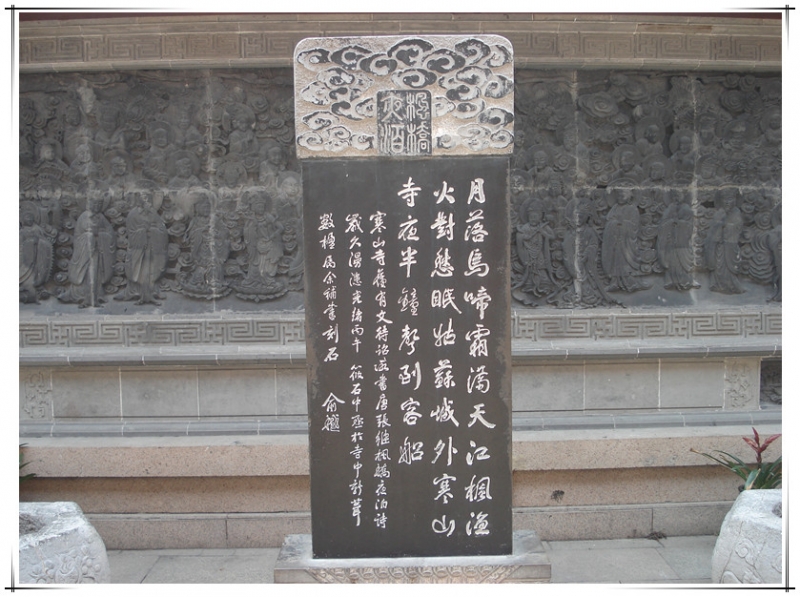 楓橋夜泊
月落烏啼霜滿天江楓漁
火對愁眠姑蘇城外寒山
寺夜半鐘聲到客船
寒山寺舊有文待詔所書唐張繼楓橋夜泊詩
歲久漫漶光緒丙午筱石中丞於寺中新葺
數楹屬余補書刻石
俞樾